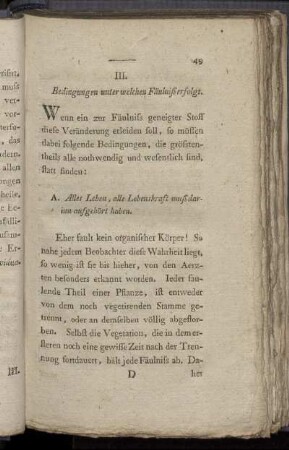 49
III.
Bedingungen unter welchen Fäulniß erfolgt.
Wenn ein zur Fäulniß geneigter Stoff
diese Veränderung erleiden soll, so müssen
dabei folgende Bedingungen, die größten-
theils alle nothwendig und wesentlich sind,
statt finden:
A. Alles Leben, alle Lebenskraft muß dar-
inn aufgehört haben.
Eher fault kein organischer Körper! So
nahe jedem Beobachter diese Wahrheit liegt,
so wenig ist sie bis hieher, von den Aerz-
ten besonders erkannt worden. Jeder fau-
lende Theil einer Pflanze, ist entweder
von dem noch vegetirenden Stamme ge-
trennt, oder an demselben völlig abgestor-
ben. Selbst die Vegetation, die in dem er-
steren noch eine gewisse Zeit nach der Tren-
nung fortdauert, hält jede Fäulniß ab. Da-
D her